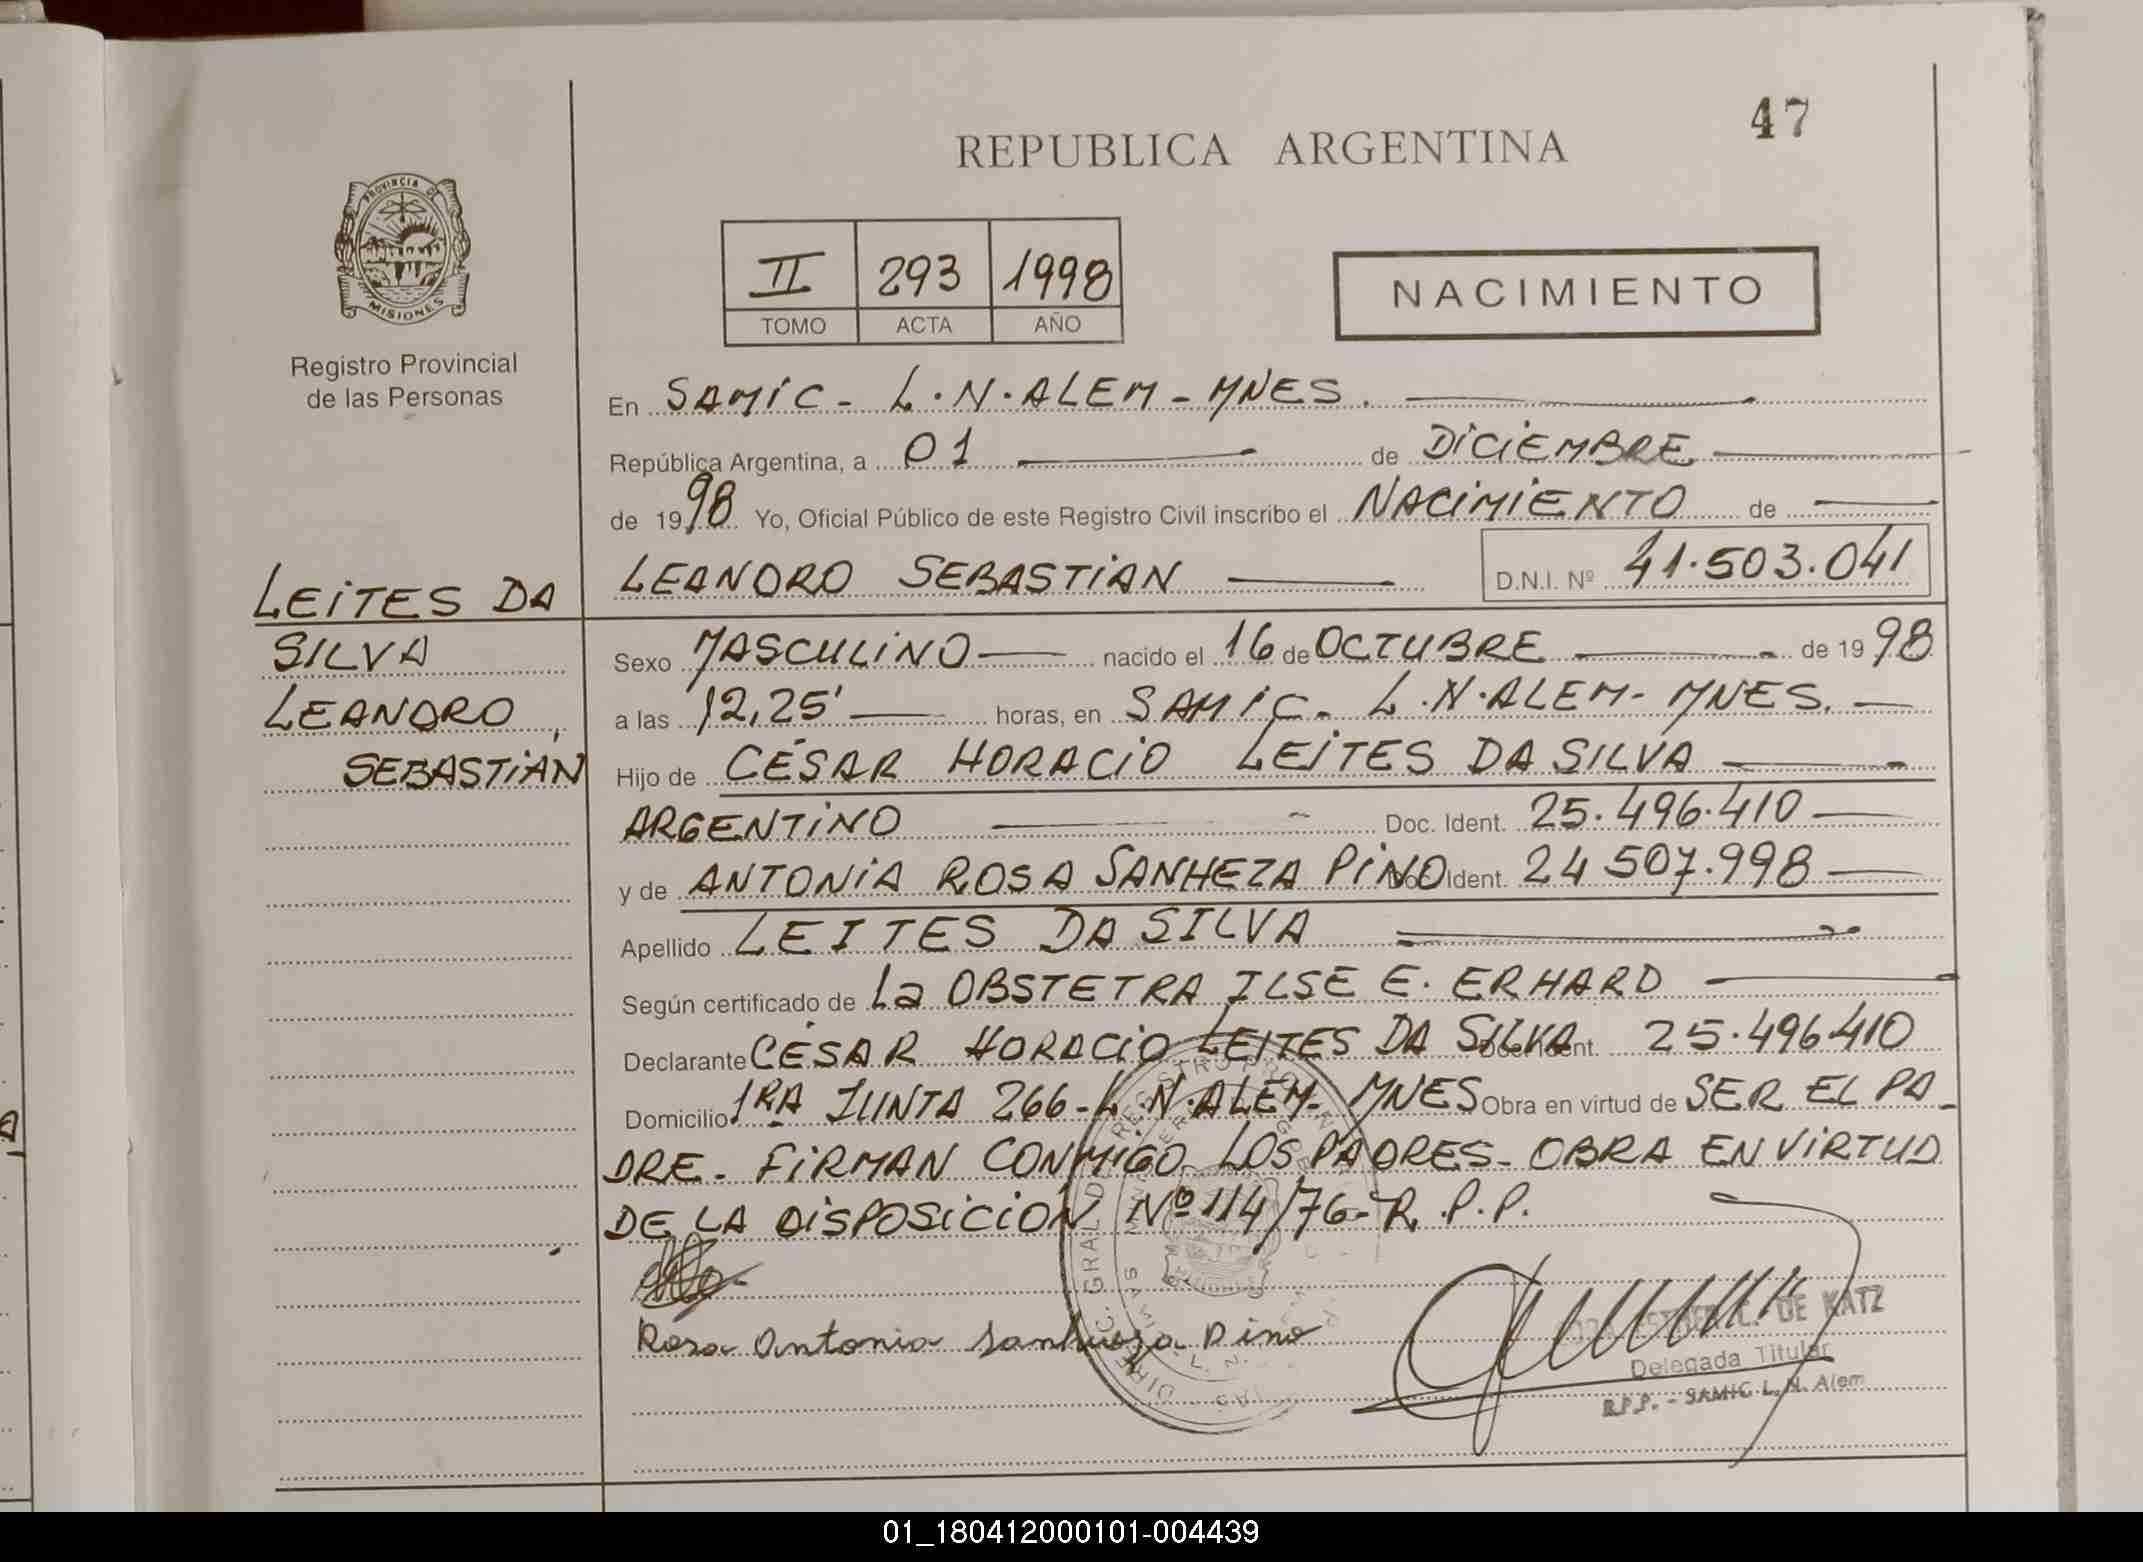 47
REPUBLICA ARGENTINA
PROVINCIA DE
MISIONES
Registro Provincial
de las Personas
II 293 1998
TOMO ACTA AÑO
NACIMIENTO
En SAMIC - L.N. ALEM - MNES.
República Argentina, a 01 de DICIEMBRE
de 1998 Yo, Oficial Público de este Registro Civil inscribo el NACIMIENTO de
LEANDRO SEBASTIAN D.N.I. Nº 41.503.041
LEITES DA
SILVA
LEANDRO
SEBASTIAN
Sexo MASCULINO nacido el 16 de OCTUBRE de 1998
a las 12,25' horas, en SAMIC - L.N. ALEM - MNES.
Hijo de CÉSAR HORACIO LEITES DA SILVA
ARGENTINO Doc. Ident. 25.496.410
y de ANTONIA ROSA SANHEZA PINO Doc. Ident. 24 507.998
Apellido LEITES DA SILVA
Según certificado de La OBSTETRA ILSE E. ERHARD
Declarante CÉSAR HORACIO LEITES DA SILVA Doc. Ident. 25.496410
Domicilio 1RA JUNTA 266 - L.N. ALEM - MNES Obra en virtud de SER EL PA-
DRE - FIRMAN CONMIGO LOS PADRES - OBRA EN VIRTUD
DE LA DISPOSICIÓN Nº 114/76 - R.P.P.
Rosa Antonia Sanhueza Pino
C. DE KATZ
Delegada Titular
R.P.P. - SAMIC L. N. Alem
01_180412000101-004439